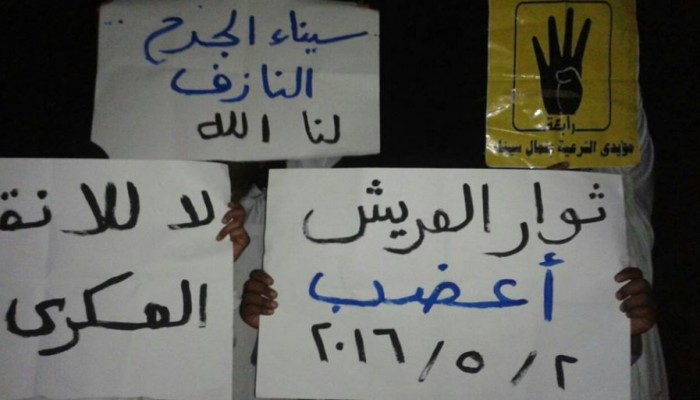 سيناء الجرح
النازف
لنا الله
رابعة
مؤيدى الشرعية بشمال سيناء
لا للانق
العسكرى
ثوار العريش
أغضب
٢ / ٥ / ٢٠١٦